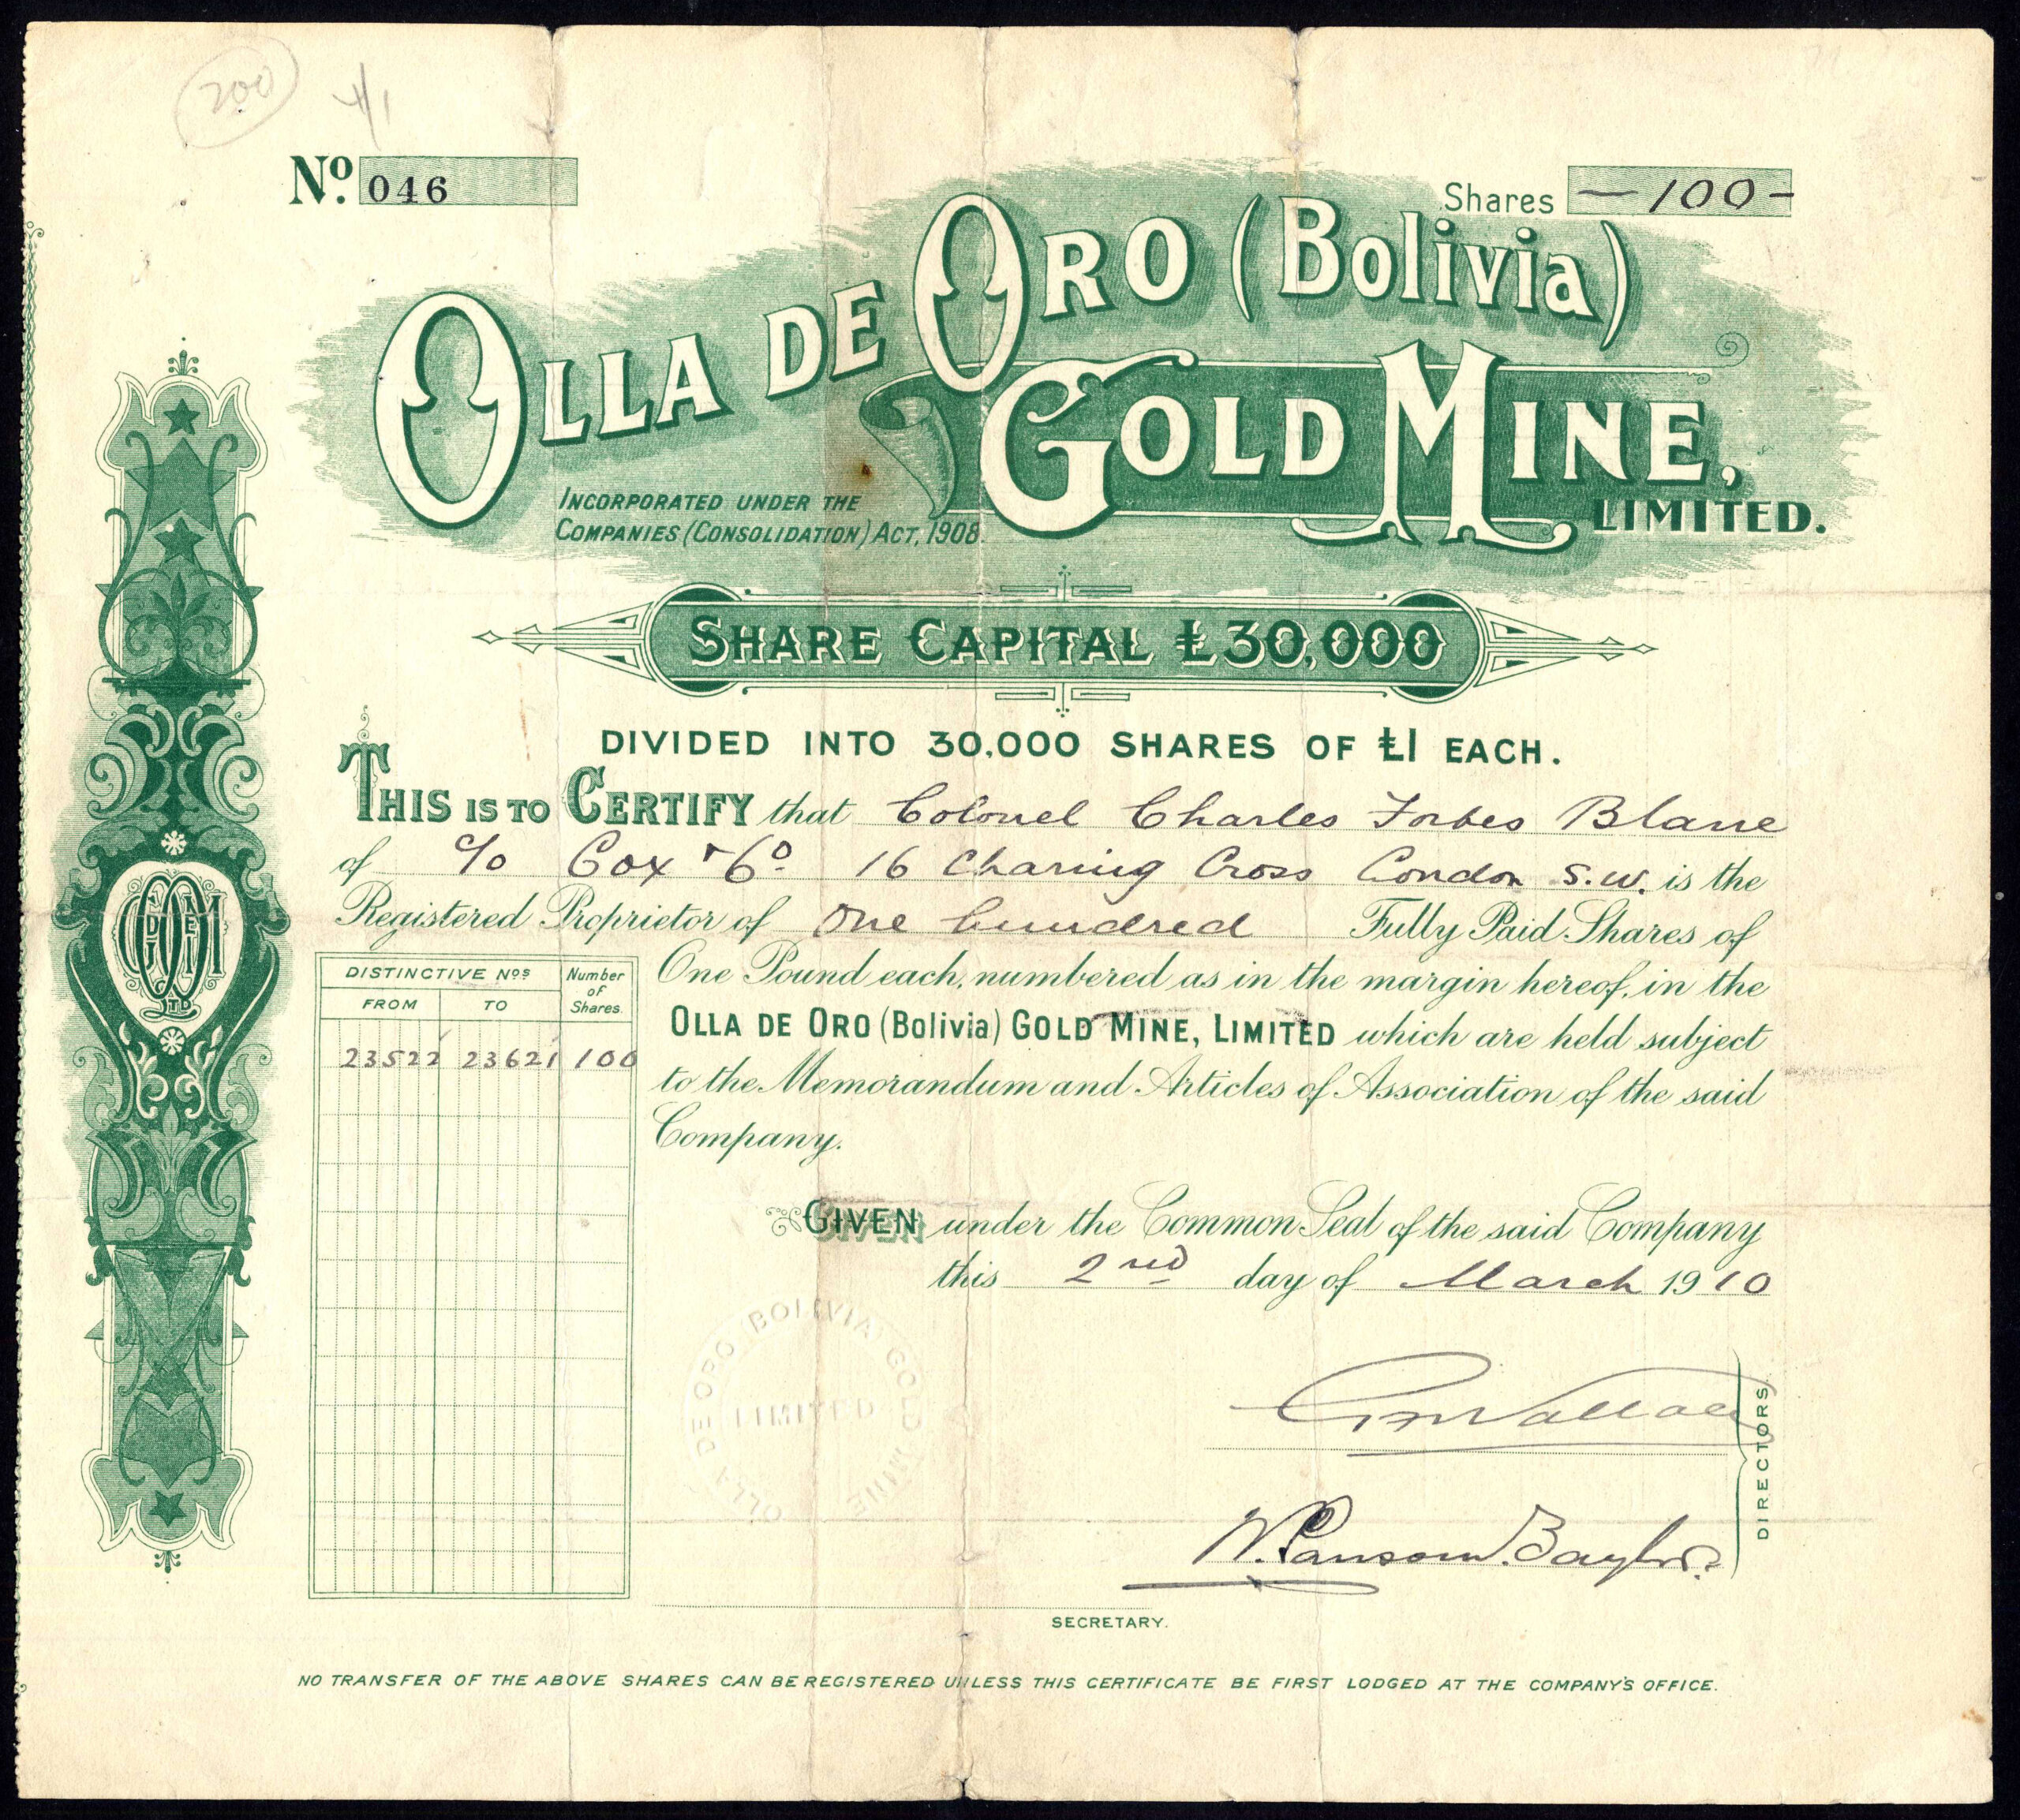 200
No. 046
Shares —100—
OLLA DE ORO (Bolivia)
GOLD MINE,
LIMITED.
INCORPORATED UNDER THE
COMPANIES (CONSOLIDATION) ACT, 1908.
SHARE CAPITAL £30,000
DIVIDED INTO 30,000 SHARES OF £1 EACH.
THIS IS TO CERTIFY that Colonel Charles Forbes Blane
of c/o Cox & Co. 16 Charing Cross London S.W. is the
Registered Proprietor of One hundred Fully Paid Shares of
One Pound each, numbered as in the margin hereof, in the
OLLA DE ORO (Bolivia) GOLD MINE, LIMITED which are held subject
to the Memorandum and Articles of Association of the said
Company.
DISTINCTIVE Nos Number of Shares.
FROM TO
23522 23621 100
GIVEN under the Common Seal of the said Company
this 2nd day of March 1910
OLLA DE ORO (BOLIVIA) GOLD MINE
LIMITED
Wallace
DIRECTORS.
SECRETARY.
NO TRANSFER OF THE ABOVE SHARES CAN BE REGISTERED UNLESS THIS CERTIFICATE BE FIRST LODGED AT THE COMPANY'S OFFICE.